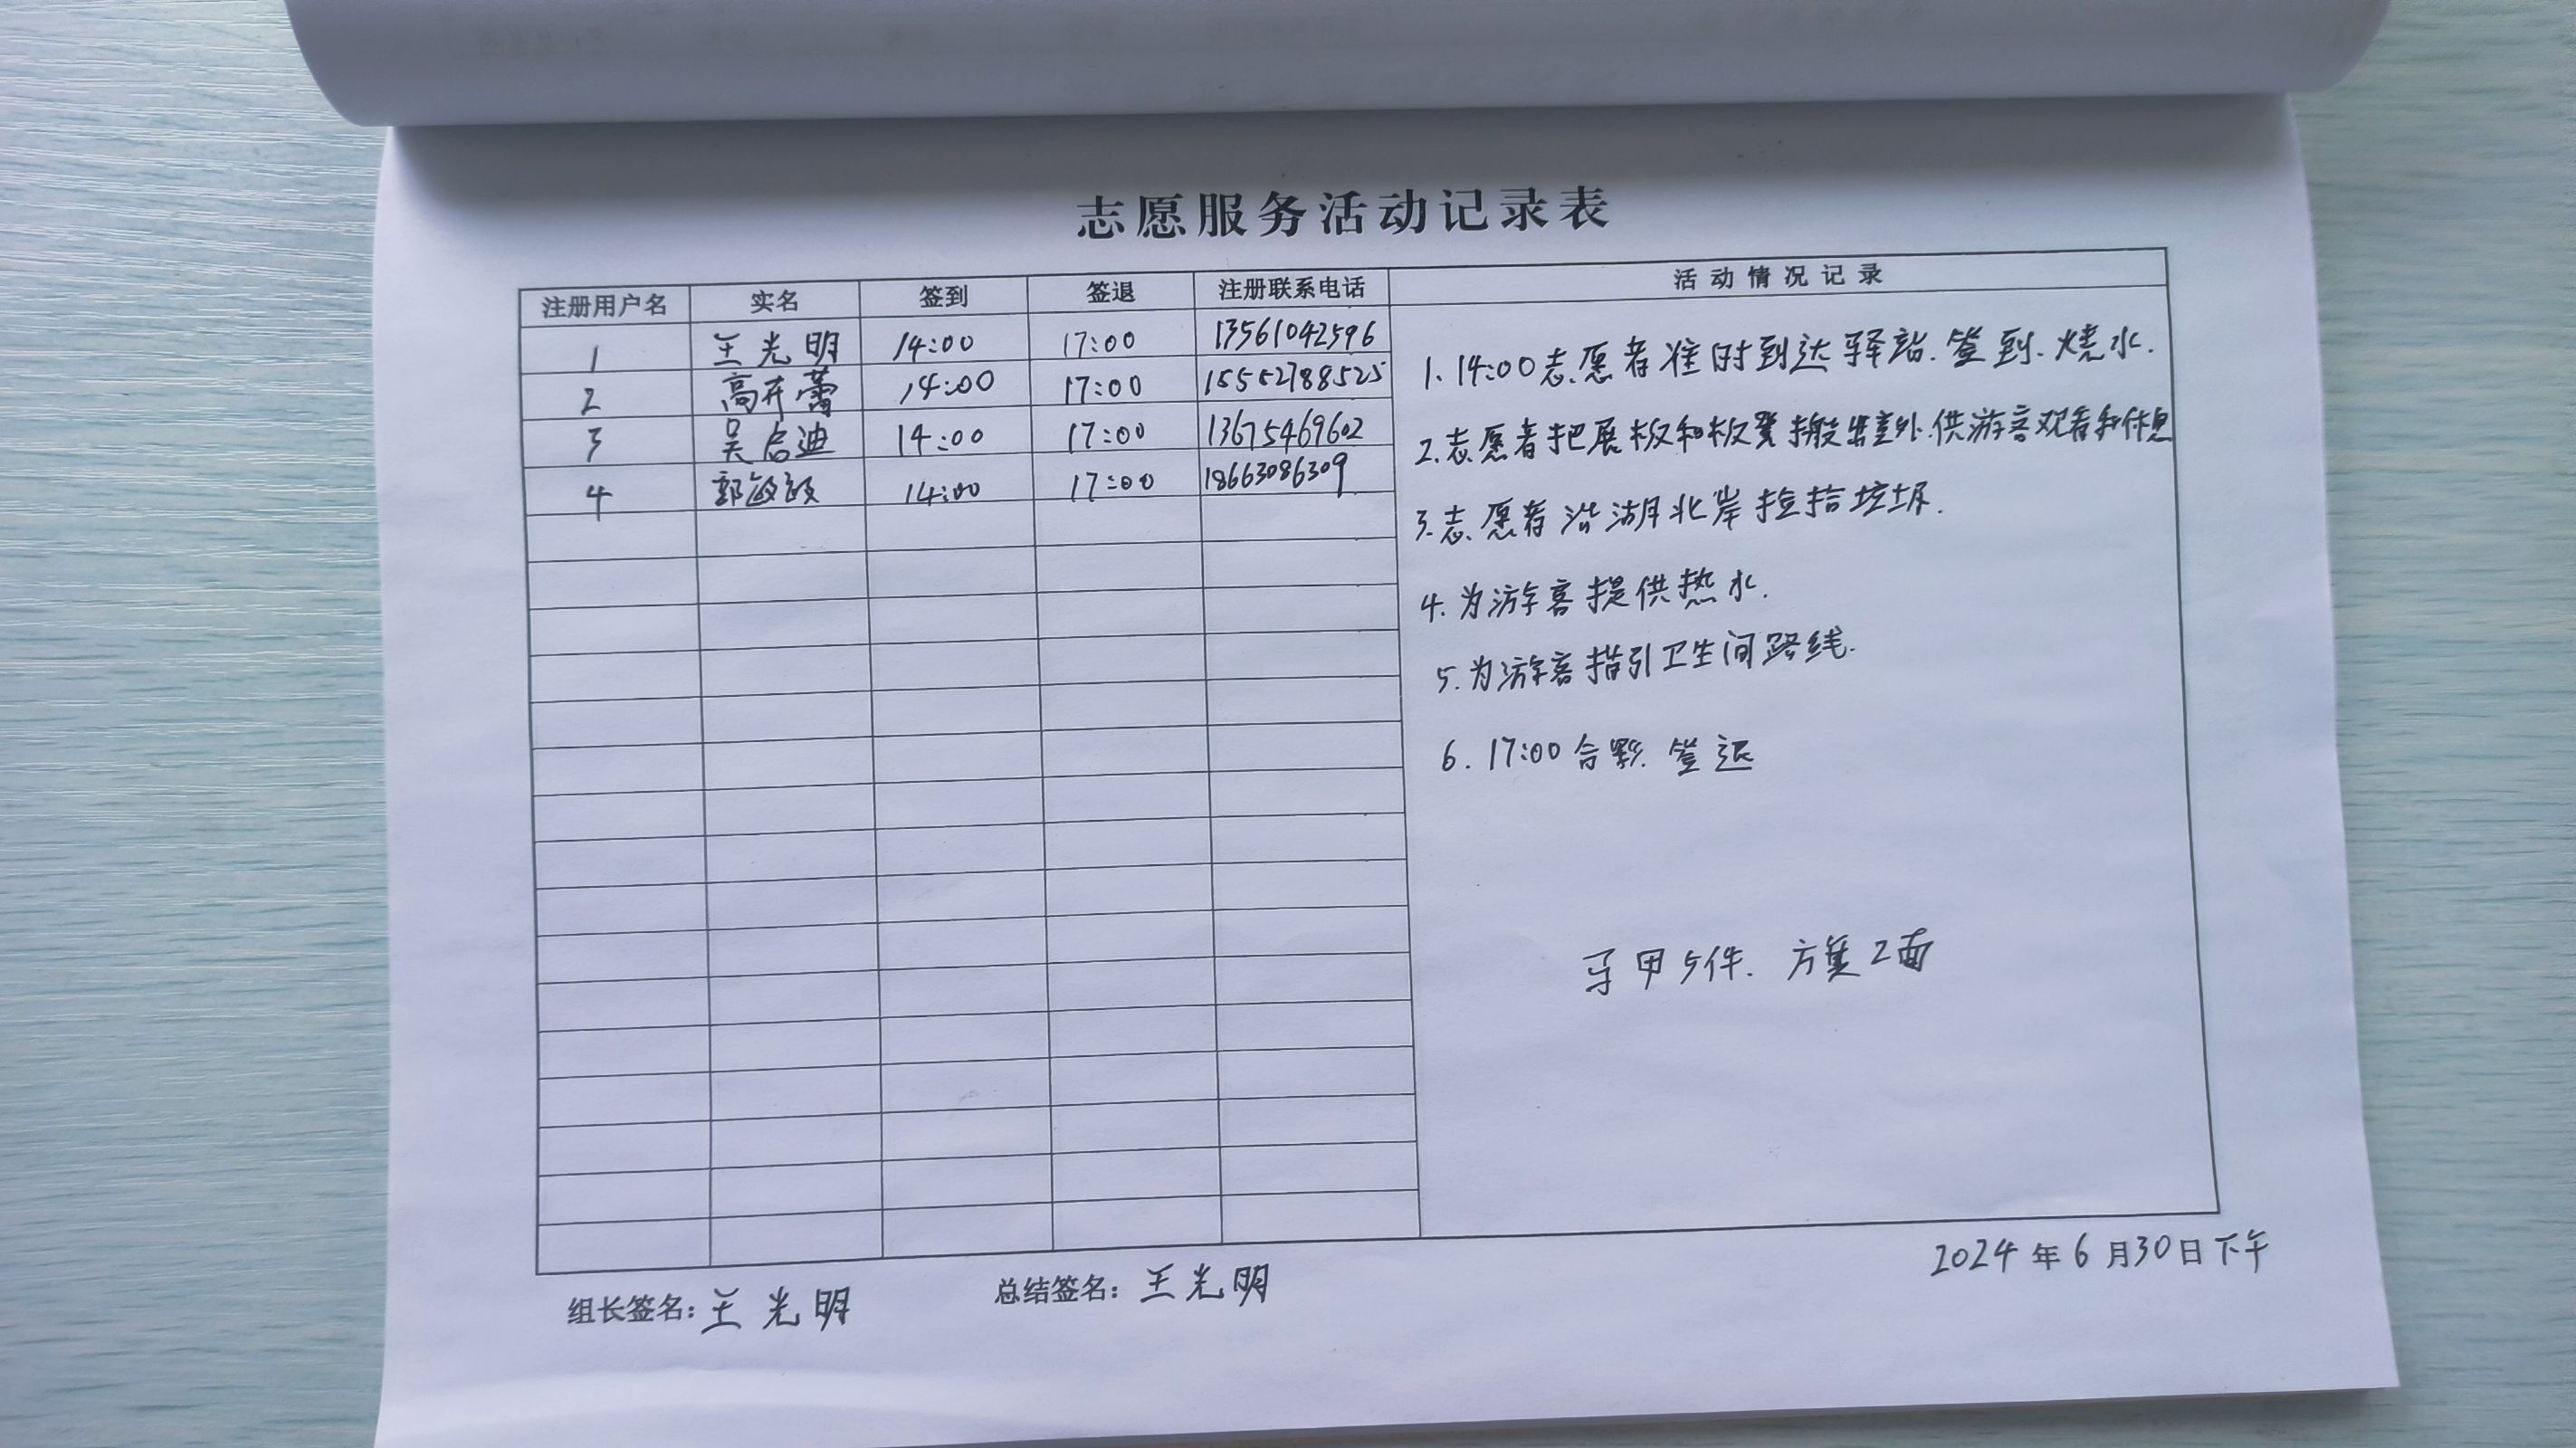 志愿服务活动记录表
注册用户名 实名 签到 签退 注册联系电话 活动情况记录
1 王光明 14:00 17:00 13561042596
2 高开蕾 14:00 17:00 15552788525
3 吴启迪 14:00 17:00 13675469602
4 郭敏敏 14:00 17:00 18663086309
1. 14:00志愿者准时到达驿站.签到.烧水.
2.志愿者把展板和板凳搬出室外.供游客观看和休息
3.志愿者沿湖北岸捡拾垃圾.
4.为游客提供热水.
5.为游客指引卫生间路线.
6. 17:00合影.签退
马甲5件. 方旗2面
组长签名:王光明 总结签名:王光明 2024年6月30日下午